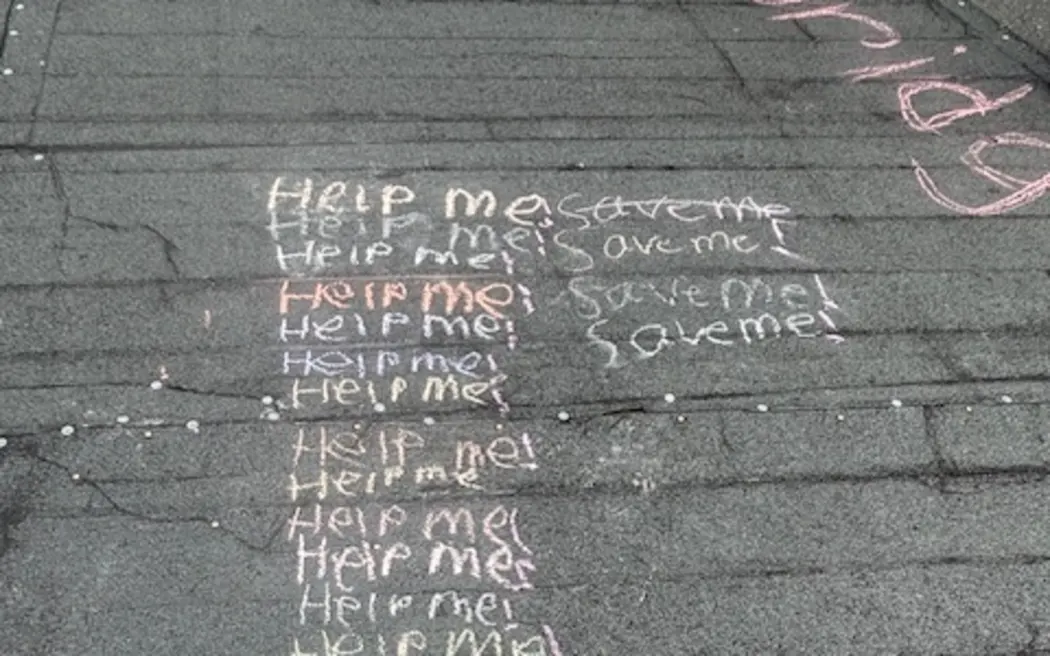 Help me saveme
Help me! Save me!
Help me!
Help me! Save me!
Help me! Save me!
Help me!
Help me!
Help me!
Help me
Help me!
Help me!
Help me!
Help me!